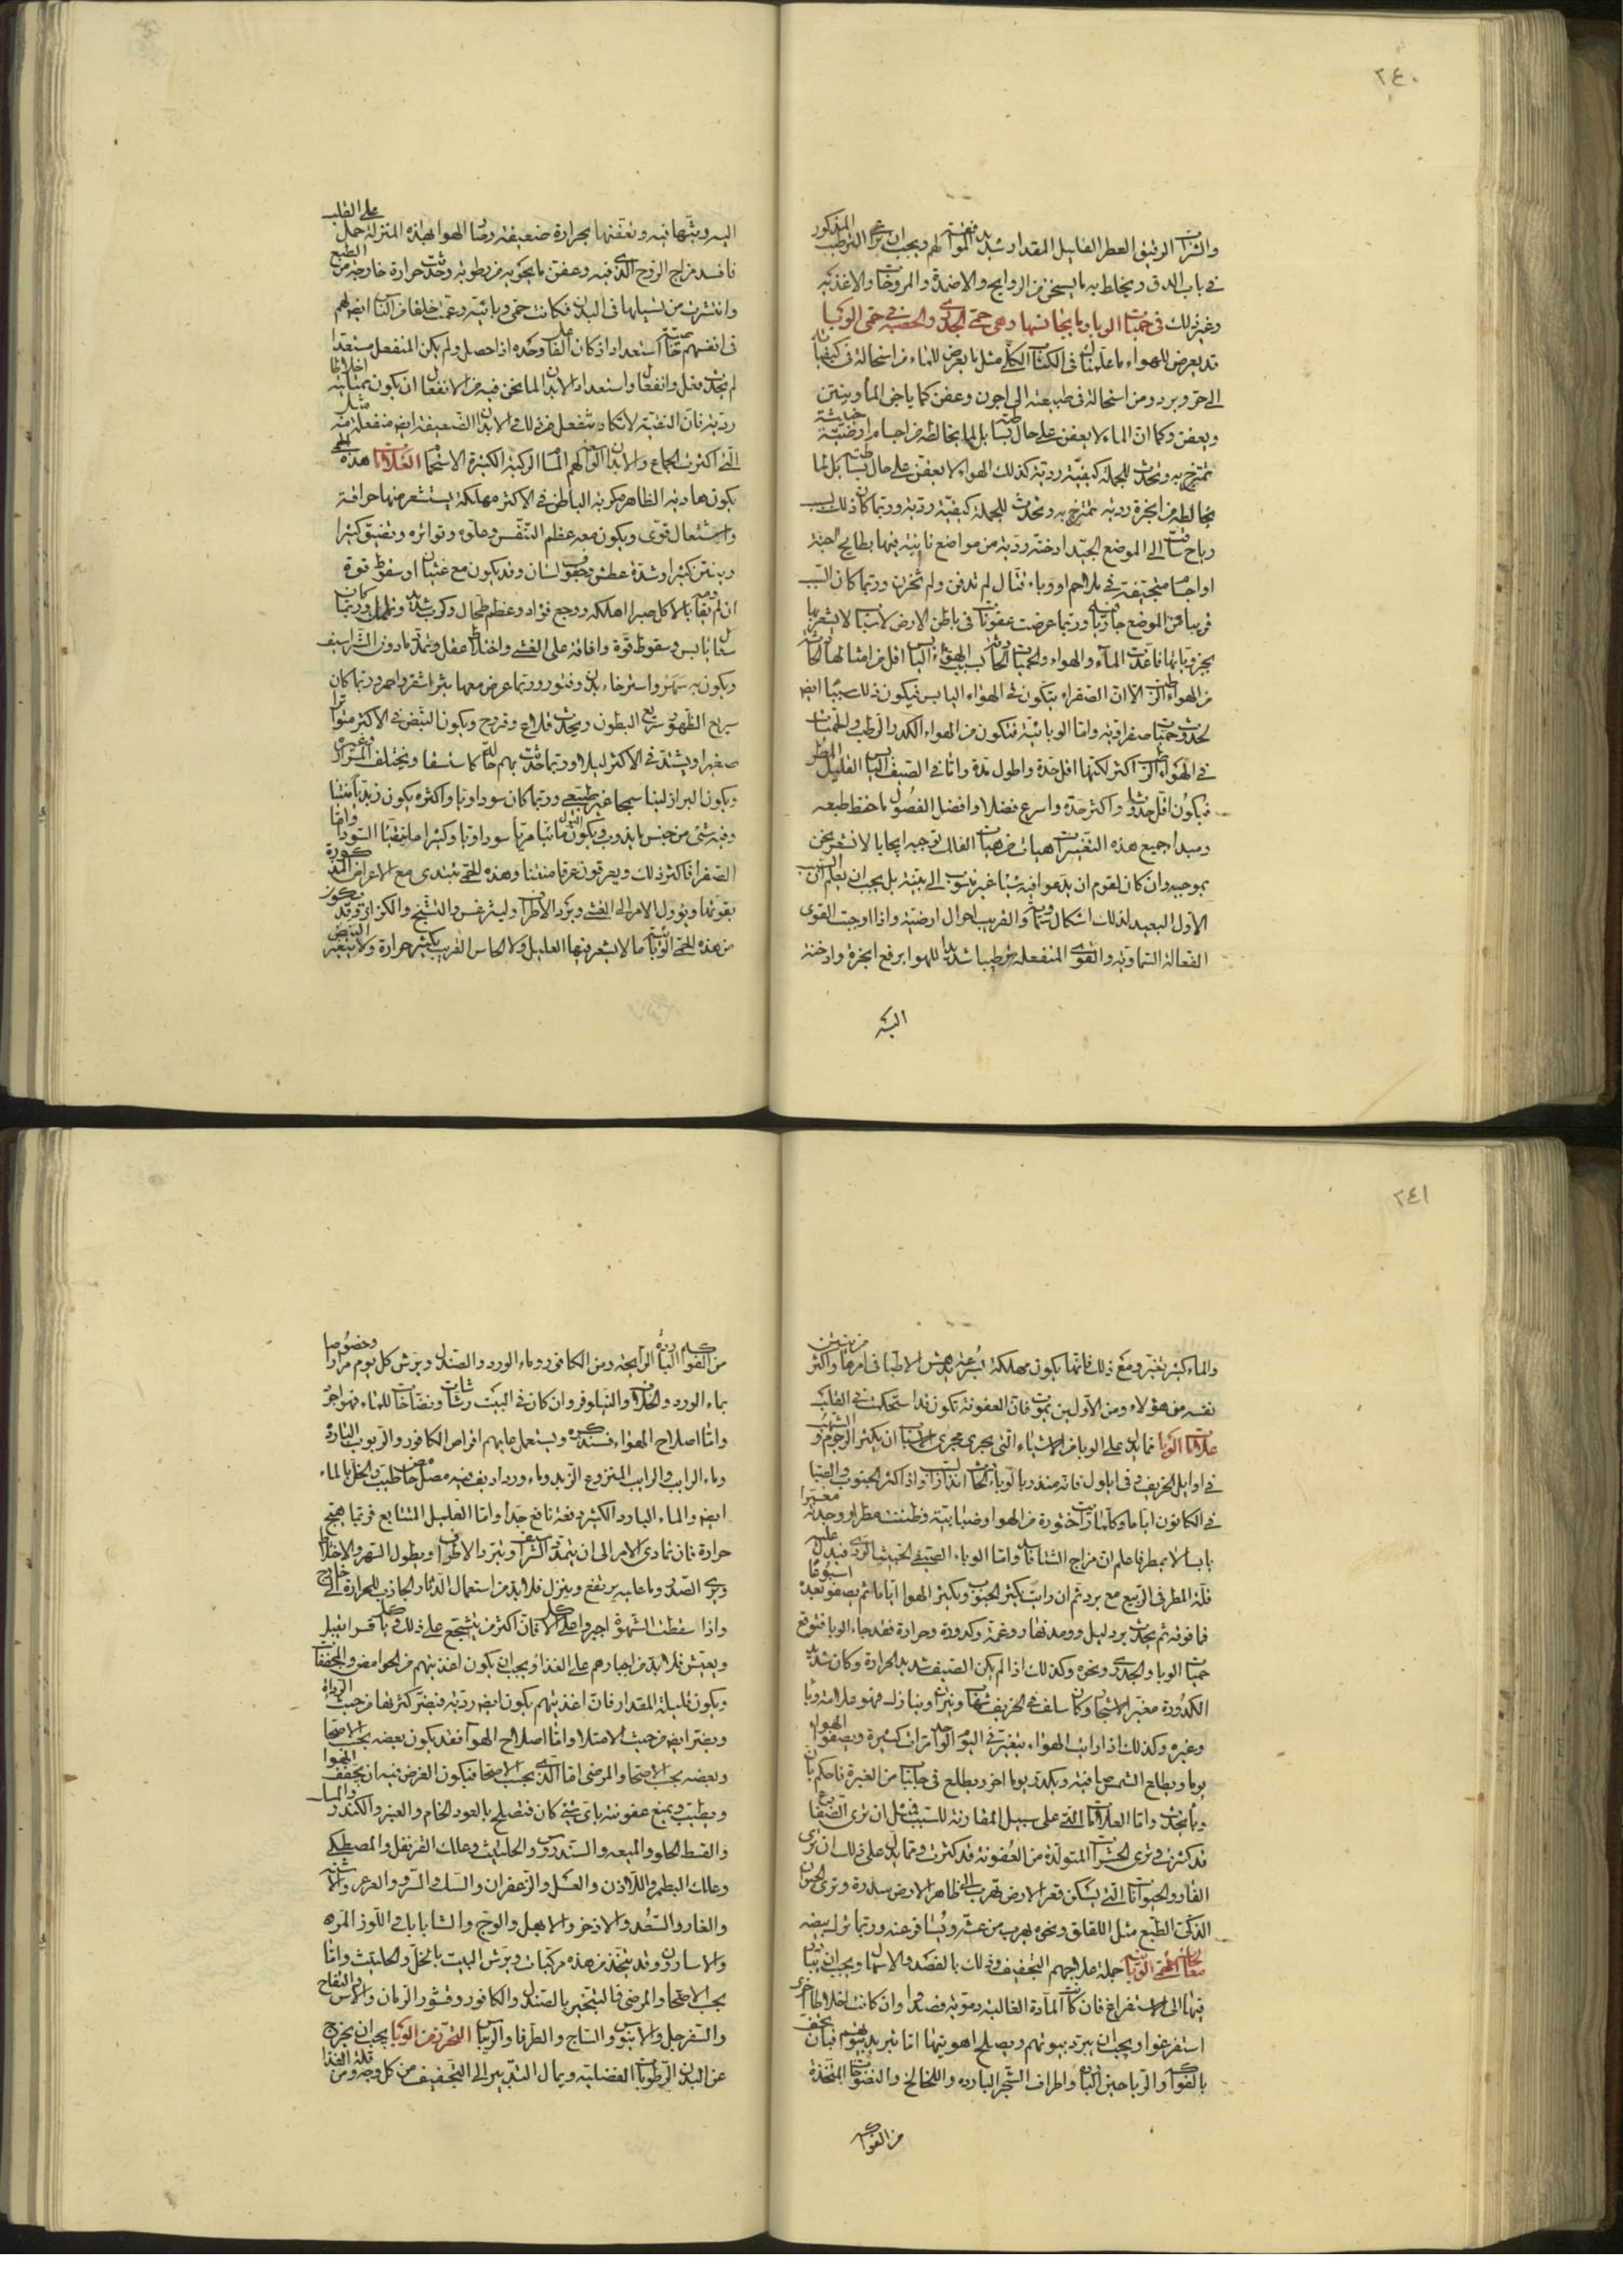 ٢٤٠
والشراب الرقيق العطر القليل المقدار شديد المنفعة لهم ويجب ان يراعى الترطيب المذكور
في باب الدق ويخلط به ما يسخن من الروايح والاضمدة والمروخات والاغذية
وغير ذلك في حميات الوبا وما يجانسها وهي حمى الجدري والحصبة في حمى الوبا
قد يعرض للهواء ما علمناك في الكتاب الكلي مثل ما يعرض للماء من استحالة في كيفياته
الى حر وبرد ومن استحالة في طبيعته الى اجون وعفن كما ياجن الماء وينتن
ويعفن وكما ان الماء لا يعفن على حال بساطته بل لما يخالطه من اجسام ارضية خبيثة
تمتزج به وتحدث للجملة كيفية ردية كذلك الهواء لا يعفن على حال بساطته بل لما
يخالطه من ابخرة ردية تمتزج به وتحدث للجملة كيفية ردية وربما كان ذلك لسبب
رياح ساقت الى الموضع الجيد ادخنة ردية من مواضع نائية فيها بطايح اجنة
او اجسام متجيفة في ملاحم او وباء قتال لم تدفن ولم تحرق وربما كان السبب
قريبا من الموضع جاريا فيه وربما عرضت عفونات في باطن الارض لاسباب لا يشعر بها
بجزوياتها فاعدت الماء والهواء والحميات الحادثة بسبب الهواء اليابس اقل من امثالها الحادثة
من الهواء الرطب الا ان الصفراء يتكون في الهواء اليابس فيكون ذلك سببا ايضا
لحدوث حميات صفراوية واما الوبائية فتكون من الهواء الكدر الرطب والحميات
في الهواء الرطب اكثر لكنها اقل حدة واطول مدة واما في الصيف اليابس القليل المطر
فيكون اقل حدوثا واكثر حدة واسرع فضلا وافضل الفصول ما حفظ طبعه
ومبدا جميع هذه التغيرات هيات من هيات الفلك توجبه ايجابا لا نشعر نحن
بموجبه وان كان لقوم ان يدعوا فيه شيئا غير منسوب الى بينة بل يجب ان يعلم ان السبب
الاول البعيد لذلك اشكال سماوية والقريب احوال ارضية واذا اوجبت القوى
الفعالة السماوية والقوى المنفعلة ترطيبا شديدا للهوا برفع ابخرة وادخنة
اليه
اليه ويبثها فيه ويعفنها بحرارة ضعيفة وصار الهوا بهذه المنزلة حمل على القلب
فافسد مزاج الروح الذي فيه وعفن ما يحويه من رطوبة وحدثت حرارة خارجة من الطبع
وانتشرت من سبيلها في البدن فكانت حمى وبائية وعمت خلقا من الناس ايضا لهم
في انفسهم خاصية استعداد اذ كان الفاعل وحده اذا حصل ولم يكن المنفعل مستعدا
لم يحدث فعل وانفعال واستعداد الابدان لما نحن فيه من الانفعال ان يكون ممتلية اخلاطا
ردية فان النقية لا تكاد تنفعل من ذلك والابدان الضعيفة ايضا منفعلة منه مثل
التي اكثرت الجماع والابدان الواسعة لهم المسام الرطبة الكثيرة الاستحمام العلامات هذه الحمى
يكون هادية الظاهر مكربة الباطن في الاكثر مهلكة يستشعر منها حرافة
واشتعال قوي ويكون معه عظم التنفس وعلوه وتواتره وتضيق كثيرا
وينتن كثيرا وشدة عطش وجفوف لسان وقد يكون مع غثيان او سقوط شهوة
ان لم يقاومه بالاكل صبرا اهلكه ووجع فؤاد وعظم طحال وكرب شديد وتململ وربما كان
سعال يابس وسقوط قوة وافاقة على الغشي واختلاط عقل وتمدد ما دون الشراسيف
ويكون به سهر واسترخاء بدن وفتور وربما عرض معها بثر اشقر واحمر وربما كان
سريع الظهور سريع البطون ويحدث قلاع وقروح ويكون النبض في الاكثر متواترا
صغيرا ويشتد في الاكثر ليلا وربما حدث بهم حالة كالاستسقا ويختلف المرار وغيره
ويكون البراز لينا سمجا غير طبيعي وربما كان سوداويا واكثره يكون زبديا منتنا
وفيه شي من جنس ما يذوب ويكون البول مائيا مريا سوداويا وكثيرا ما يتقيا السوداء واما
الصفرا فاكثر ذلك ويعرقون عرقا منتنا وهذه الحمى تبتدي مع الاعراض المذكورة
بقوتها ويؤول الامر الى الغشي وبرد الاطراف وليثرغس والتشنج والكزاز وقد يكون
من هذه الحمى الوبائية ما لا يشعر فيها العليل ولا الحاس القريب بكثير حرارة ولا يتغير النبض
٢٤١
والماء كثير تغير ومع ذلك فانها يكون مهلكة بسرعة يدهش الاطبا في امرها واكثر من ينتن
نفسه من هؤلاء ومن الاولين يموت فان العفونة تكون قد استحكمت في القلب
علامات الوبا مما يدل على الوبا من الاشياء التي يجري مجرى الاسباب ان يكثر الرجوم والشهب
في اوايل الخريف وفي ايلول فانه منذر بالوباء الحادث انذار السبب واذا كثر الجنوب والصبا
في الكانون اياما وكلما رايت خثورة من الهوا وضبابية وظننت مطرا ووجدته مغبرا
يابسا لا يمطر فاعلم ان مزاج الشتا فاسد واما الوباء الصيفي الخبيث الردي فيدل عليه
قلة المطر في الربيع مع برد ثم ان رايت يكثر الجنوب ويكدر الهوا اياما ثم يصفو بعده اسبوعا
فما فوقه ثم يحدث برد ليل وومد نهار وغمة وكدورة وحرارة فقد جاء الوبا فتوقع
حميات الوبا والجدري ونحوه وكذلك اذا لم يكن الصيف شديد الحرارة وكان شديد
الكدورة مغبر الاشجار وكان سلف في الخريف شهب ونيران ونيازك فهو علامة وبا
وغيره وكذلك اذا رايت الهواء يتغير في اليوم الواحد مرات كثيرة ويصفو الهوا
يوما ويطلع الشمس صافية ويكدر يوما اخر ويطلع في جلباب من الغبرة فاحكم بان
وبا يحدث واما العلامات التي على سبيل المقارنة للسبب فمثل ان ترى الضفادع
قد كثرت وترى الحشرات المتولدة من العفونة قد كثرت ومما يدل على ذلك ان ترى
الفار والحيوانات التي يسكن قعر الارض تهرب الى ظاهر الارض سدرة وترى الحيوان
الذكي الطبع مثل اللقلق ونحوه يهرب من عشه ويسافر عنه وربما ترك بيضه
معالجات الحمى الوبائية جملة علاجهم التجفيف وذلك بالفصد والاسهال ويجب ان يبادر
فيها الى الاستفراغ فان كانت المادة الغالبة دموية فصدوا وان كانت اخلاطا اخرى
استفرغوا ويجب ان يبرد بيوتهم ويصلح اهويتها اما تبريد بيوتهم فبان يحتف
بالفواكه والرياحين الباردة واطراف الشجر الباردة واللخالخ والنضوحات المتخذة
من الفواكه
من الفواكه الباردة الرايحة ومن الكافور وماء الورد والصندل ويرش كل يوم مرارا وخصوصا
بماء الورد والخلاف والنيلوفر وان كان في البيت رشاشات ونضاخات للماء فهو اجود
واما اصلاح الهواء فسنذكره ويستعمل عليهم اقراص الكافور والربوب الباردة
وماء الرايب والرايب المنزوع الزبد وماء ورد اديف فيه مصل حامض طيب والخل بالماء
ايضا والماء البارد الكثير دفعة نافع جدا واما القليل المتتابع فربما هيج
حرارة فان تمادى الامر الى ان يتمدد الشراسيف ويبرد الاطراف ويطول السهر والاختلاط
وترى الصدر وما عليه يرتفع وينزل فلا بد من استعمال الدثار الجاذب للحرارة الى خارج
واذا سقطت الشهوة اجبروا على الاكل فان اكثر من يتشجع على ذلك وياكل قسرا يقبل
ويعيش فلا بد من اجبارهم على الغذاء ويجب ان يكون اغذيتهم من الحوامض والمجففات
ويكون قليلة المقدار فان اغذيتهم يكون ايضا ردية فيضر كثرتها من حيث الرداة
ويضر ايضا من حيث الامتلا واما اصلاح الهوا فقد يكون بعضه بحسب الاصحا
وبعضه بحسب الاصحا والمرضى اما الذي بحسب الاصحا فيكون الغرض فيه ان يجفف الهوا
ويطيب ويمنع عفونته باي شي كان فتصلح بالعود الخام والعنبر والكندر والمسك
والقسط الحلو والميعه والسندروس والحلتيث وعلك القرنفل والمصطكي
وعلك البطم واللاذن والعسل والزعفران والسك والسرو والعرعر والاشنه
والغار والسعد والاذخر والابهل والوج والشابابك واللوز المره
والاسارون وقد يتخذ من هذه مركبات ويرش البيت بالخل والحلتيث واما
بحسب الاصحا والمرضى فالتبخير بالصندل والكافور وقشور الرمان والاس والتفاح
والسفرجل والابنوس والساج والطرفا والريباس التحرز من الوبا يجب ان يخرج
عن البدن الرطوبات الفضلية ويمال التدبير الى التجفيف من كل وجه ومن قلة الغذا